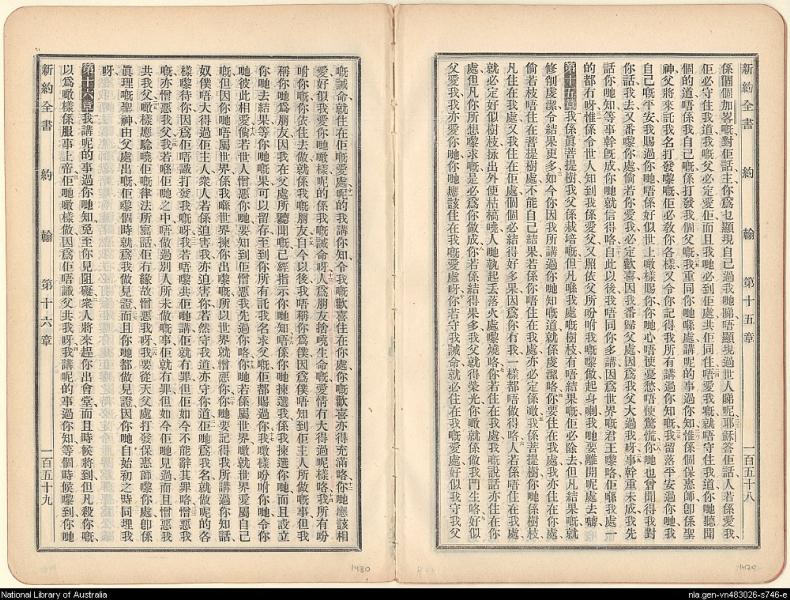 新約全書 約翰 第十五章 一百五十八
係個個加畧嘅對佢話主你爲乜顯現自己過我哋唔顯現過世人睇呢耶穌答佢話人若係愛我
佢必守住我道我嘅父必定愛佢而且我哋必到佢處共佢同住唔愛我嘅就唔守住我道你哋聽聞
個的道唔係我自己嘅係打發我個父嘅我重同你哋喺處講呢的事過你哋知惟係個保惠師卽係聖
神父將來託我名打發嚟嘅佢必敎你各樣又令你記得我所有講過你知嘅我留落平安過你哋我
自己嘅平安我賜過你哋唔係好似世上噉樣賜你你哋心唔使憂愁唔使驚慌你哋也曾聞得我對
你話我去又番嚟你處倘若你愛我必定歡喜因我番歸父處因爲我父大過我呀事幹重未成我先
話你哋知等事幹旣成你哋就信得咯自此以後我唔同你多講因爲世界嘅君王嚟咯佢喺我處一
的都冇呀惟係令世人知到我係愛父又照依父所吩咐我嘅嚟做起身喇我哋要離開呢處去罅
第十五章我係眞菩提樹我父係栽培嘅但凡喺我處嘅樹枝有唔結果嘅佢必除去但凡結果嘅就
修削處潔令結果更多如今你因我所講過你哋知嘅道就係處潔咯你要住在我處我亦住在你處
偷若枝唔住在菩提樹處不能自己結果若係你唔住在我處亦必定係噉我係菩提樹你哋係樹枝
凡住在我處又我住在佢處個個必結得好多果因爲你冇我一樣都唔做得咯人若係唔住在我處
就必定好似樹枝掉出外便枯槁嘵人哋就起丟落火處嚟燒咯你若住在我處我嘅說話亦住在你
處但凡你所想嚟求嘅是必爲你做成你若係結得果多我父就得榮光你噉就係做我門生咯好似
父愛我我亦愛你哋你哋應該住在我嘅愛處呀你若守我誡命就必住在我嘅愛處好似我守我父
嘅誡命就住在佢嘅愛處呢的我講你知令我嘅歡喜住在你處你嘅歡喜亦得充滿咯你哋應該相
愛好似我愛你哋噉樣呢的係我嘅誡命呀人爲朋友捨嘵生命嘅愛情冇大得過呢樣咯我所有吩
咐你嘅你依住去做就係我嘅朋友自今以後我唔稱你爲僕因爲僕唔知到佢主人所做嘅事但我
稱你哋爲朋友因我在父處所聽聞嘅已經指示你哋知唔係你哋揀選我係我揀選你哋而且設立
你哋去結果等你嘅果可以留存至到你所有託我名求父嘅佢都賜過你我噉樣吩咐你哋令你
哋彼此相愛倘若世人憎惡你哋要知到佢憎惡我先過你咯你哋若係屬世界噉就世界愛屬自己
嘅但因你哋唔屬世界係我喺世界揀你出嚟嘅所以世界就憎惡你你哋要記得我所講過你知話
奴僕唔大得過佢主人衆人若係迫害我亦迫害你若然守我道亦守你道佢哋爲我名就做呢的各
樣嚟待你因爲佢唔識打發我嘅呀我若唔嚟共佢哋講佢就冇罪但佢如今不能辭其罪咯憎惡我
嘅亦憎惡我父我若喺佢哋之中唔做過別人所未做嘅事佢就冇罪但如今佢哋見過而且憎惡我
共我父噉樣應驗曉佢嘅律法所寫話佢冇緣故憎惡我呀我要從天父處打發保惠師嚟你處卽係
眞理嘅聖神由父處出嘅佢嚟個時就爲我做見證而且你哋都做見證因你哋自始初之時同埋我
呀
第十六章我講呢的事過你哋知免至你見阻礙衆人將來趕你出會堂而且時候將到但凡殺你嘅
以爲噉樣係服事上帝佢哋噉樣做因爲佢唔識父共我呀我講呢的事過你知等個時候嚟到你哋
新約全書 約翰 第十六章 一百五十九
1480
1420
National Library of Australia
nla.gen-vn483026-s746-e